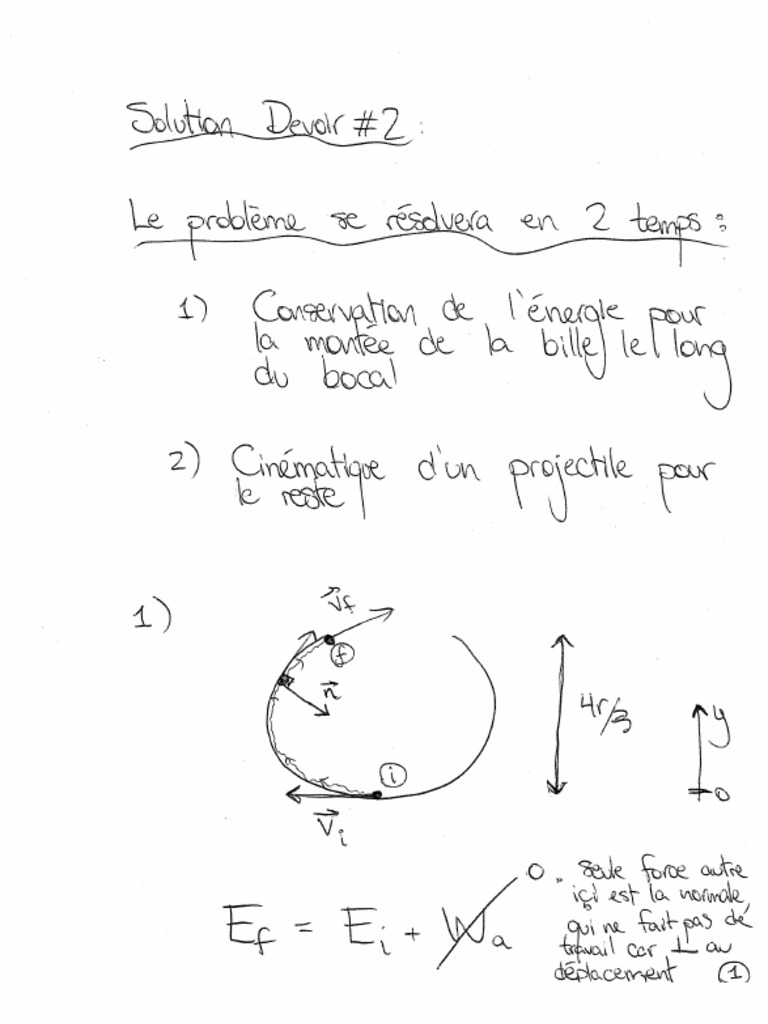 Solution Devoir #2 :
Le problème se résolvera en 2 temps :
1) Conservation de l'énergie pour
la montée de la bille le long
du bocal
2) Cinématique d'un projectile pour
le reste
1)
Vf
f
n
4r/3
y
i
0
Vi
Ef = Ei + Wa
0. seule force autre
içi est la normale,
qui ne fait pas de
travail car ⊥ au
déplacement (1)